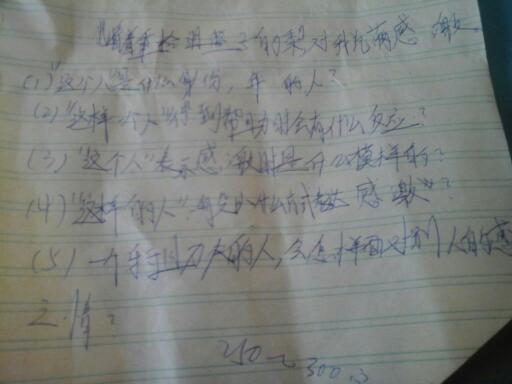 对我充满感激
(1)"这个人"是什么身份,年 的人?
(2)"这样一个人"得到帮助时会有什么反应?
(3)"这个人"表示感激时是什么模样的?
(4)"这样的人" 什么方式表达感激"?
(5)一个 的人,会怎样面对别人的感
之情?
250~300字